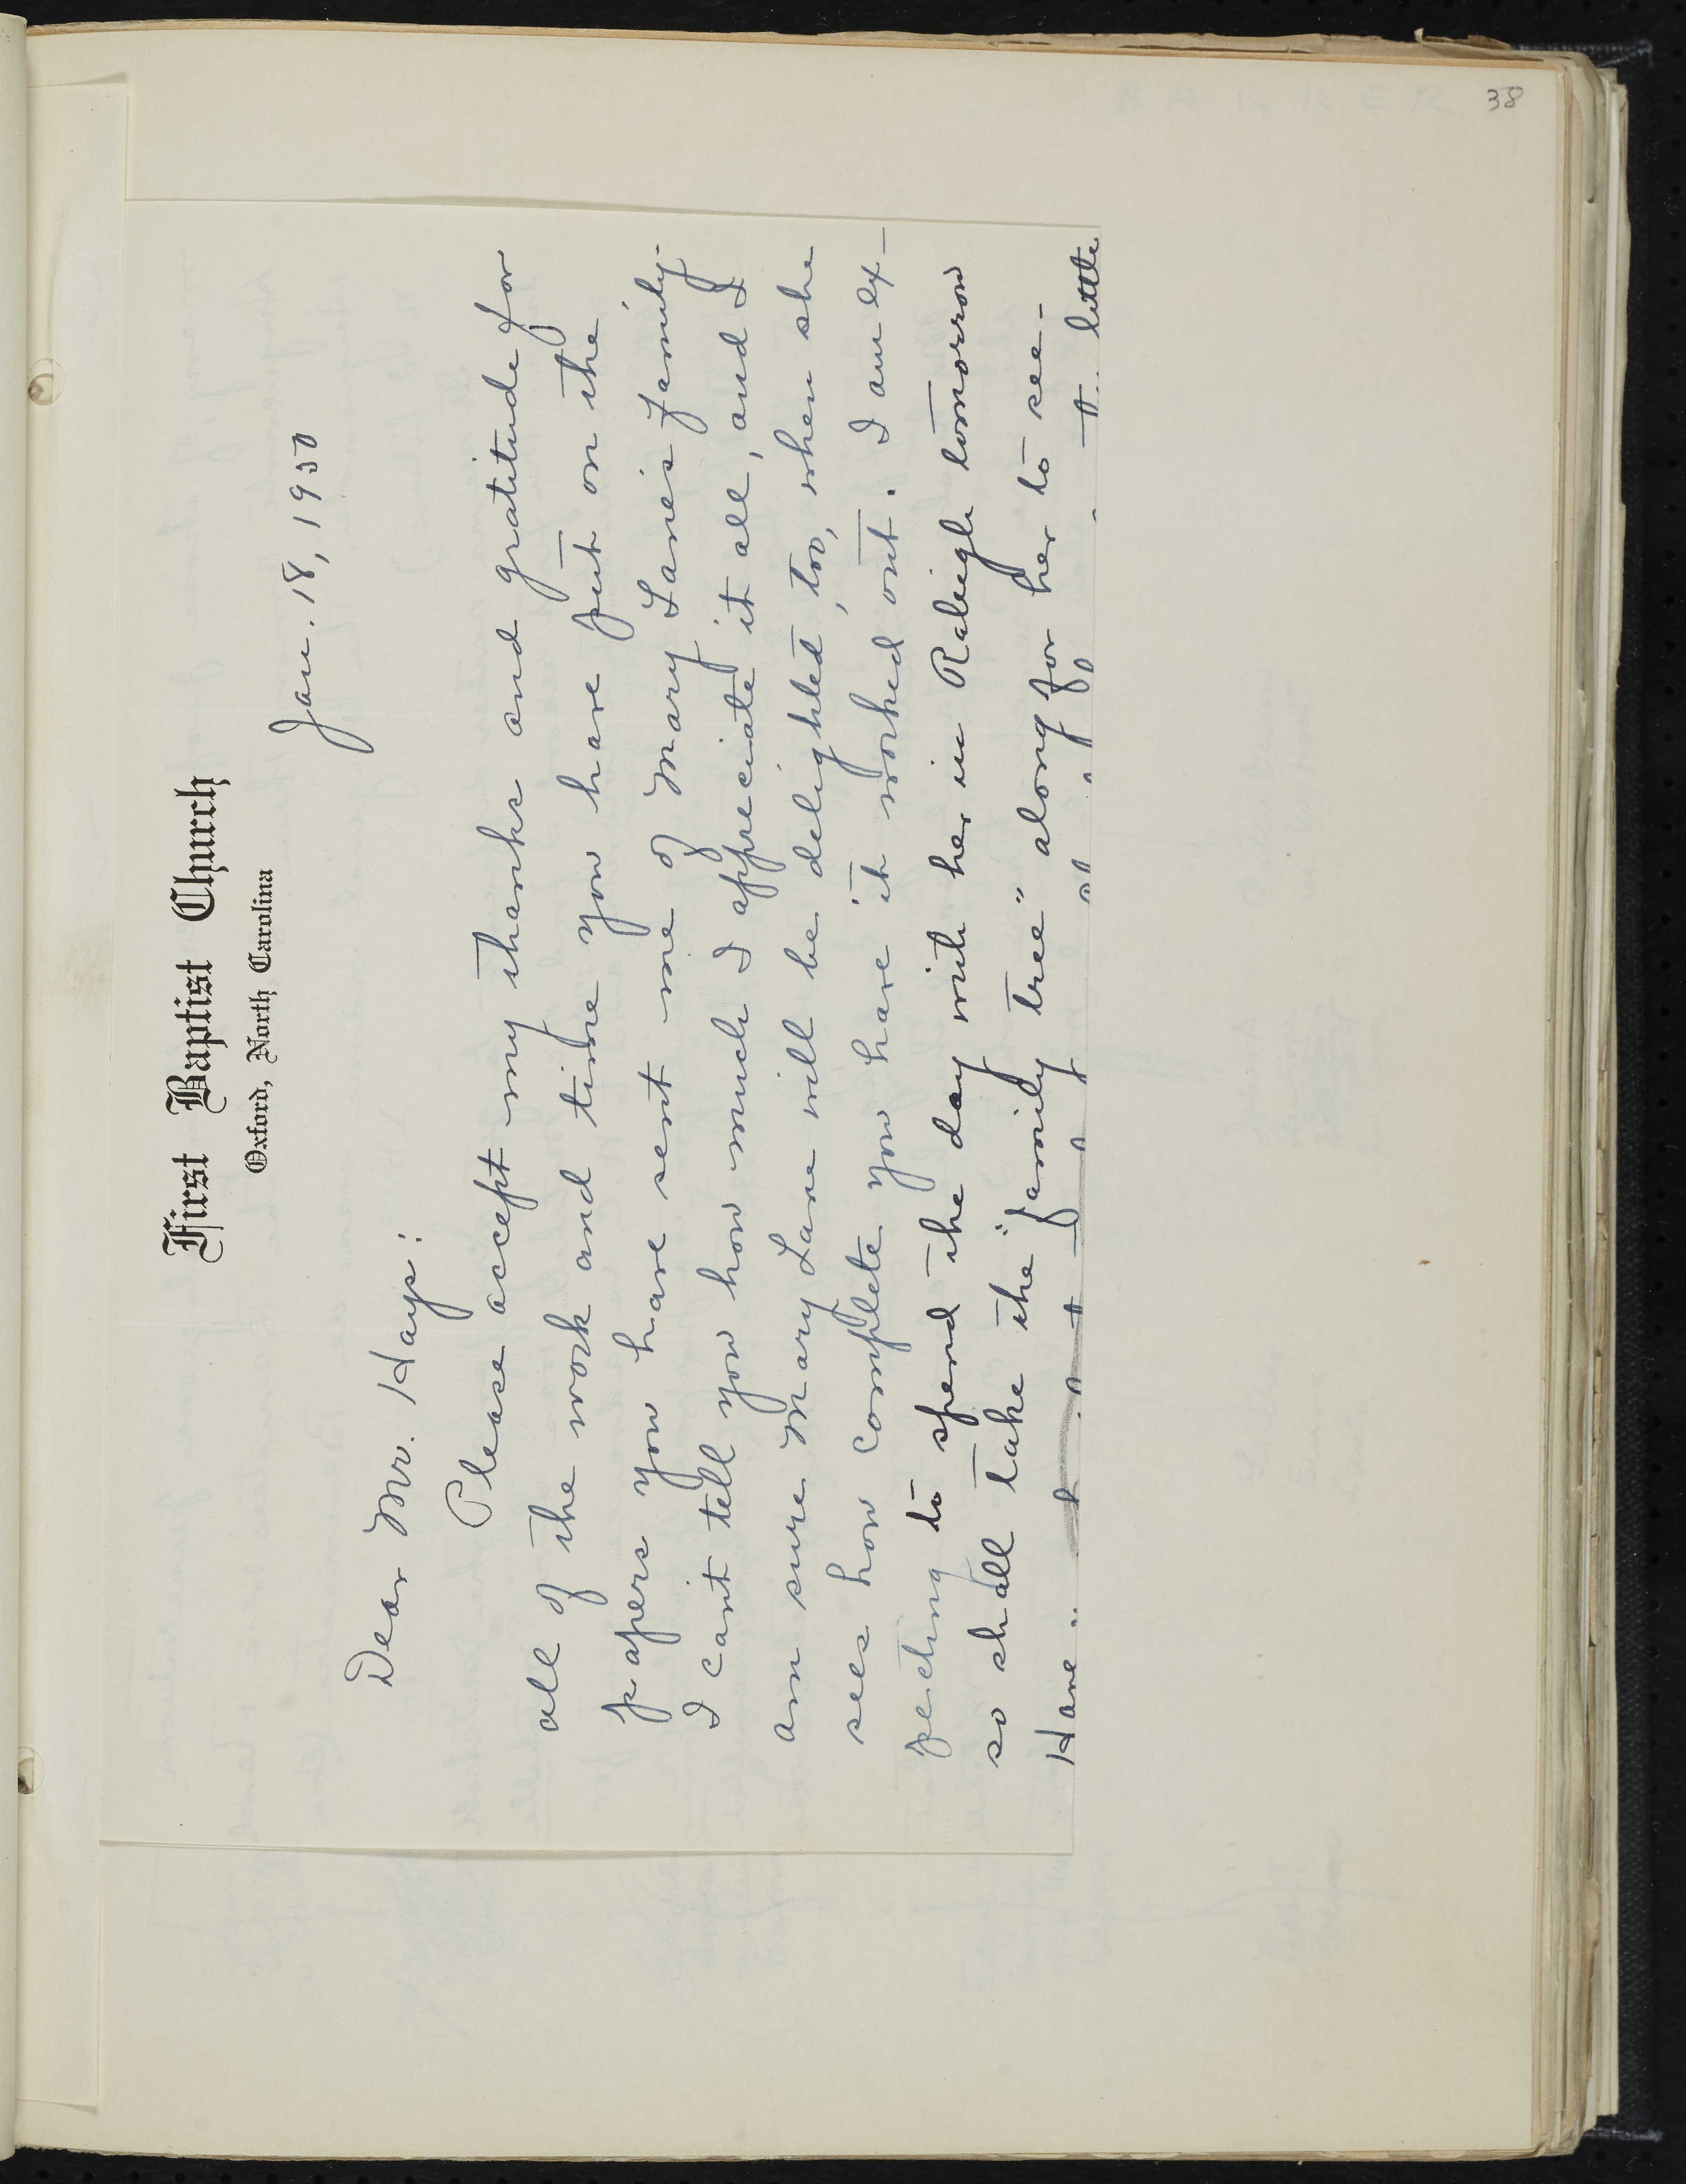 38
First Baptist Church
Oxford, North Carolina
Jan. 18, 1950
Dear Mr. Hays:
Please accept my thanks and gratitude for
all of the work and time you have put on the
papers you have sent me of Mary Lane's family.
I can't tell you how much I appreciate it all, and I
am sure Mary Lane will be delighted, too, when she
sees how complete you have it worked out. I am ex-
pecting to spend the day with her in Raleigh tomorrow
so shall take the "family tree" along for her to see-
Have
little